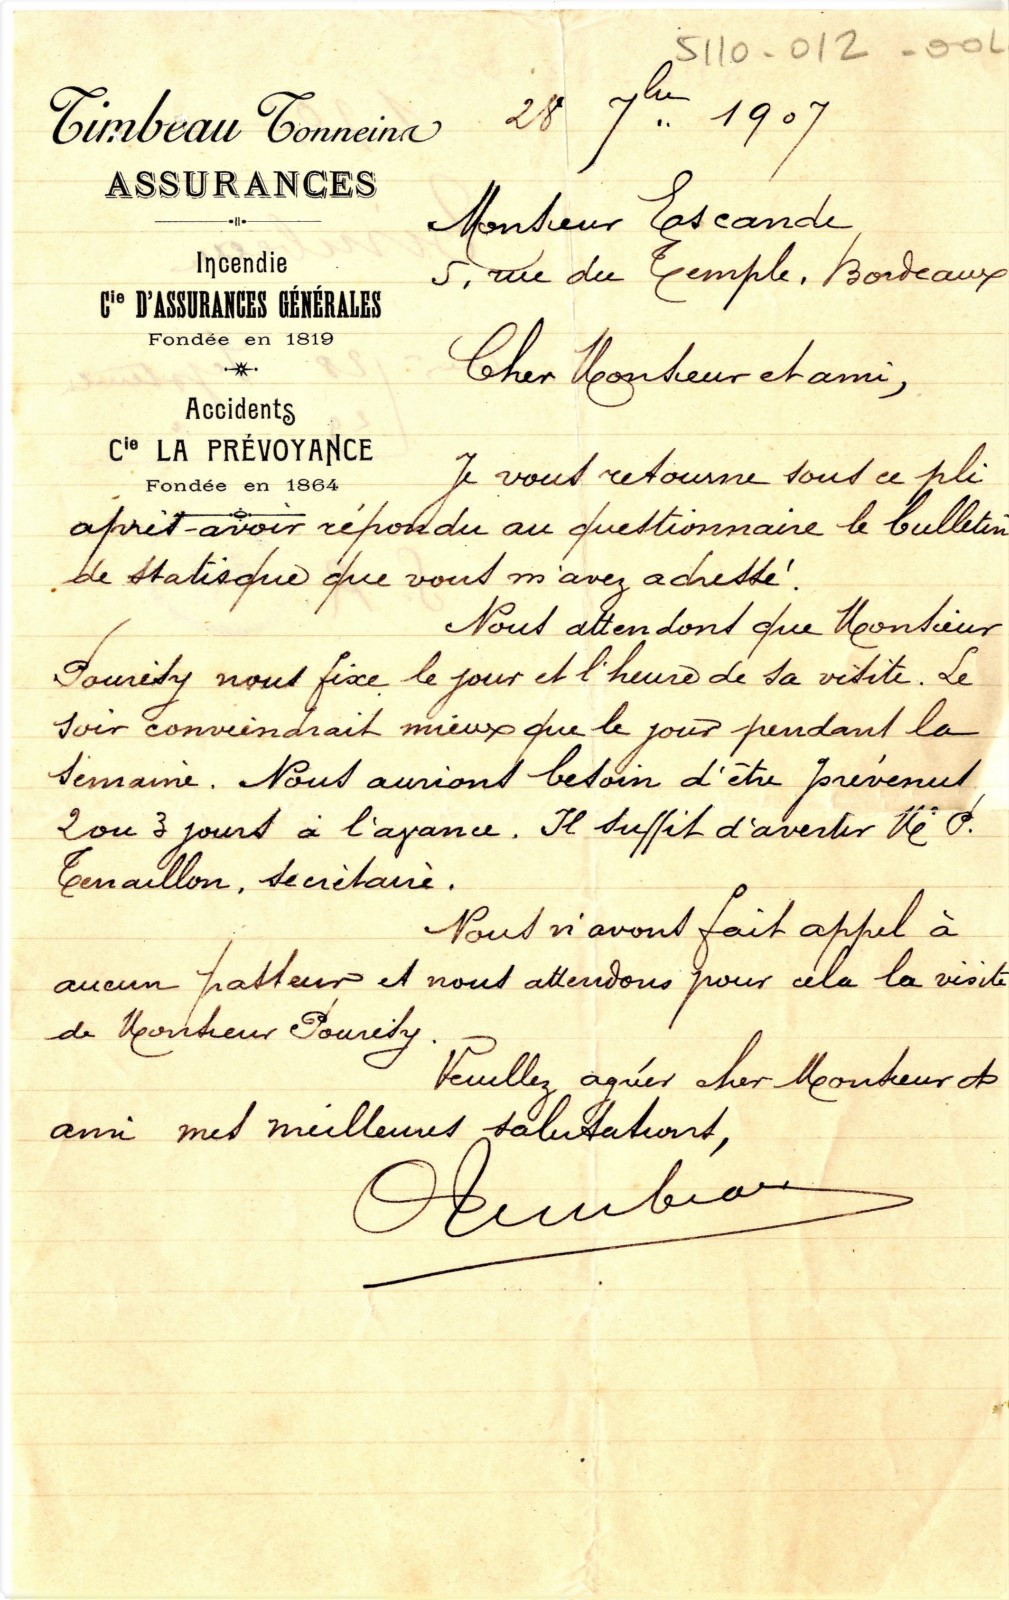 5110-012-00
Timbeau Tonneins
ASSURANCES
Incendie
Cie D'ASSURANCES GÉNÉRALES
Fondée en 1819
Accidents
Cie LA PRÉVOYANCE
Fondée en 1864
28 7bre 1907
Monsieur Escande
5, rue du Temple, Bordeaux
Cher Monsieur et ami,
Je vous retourne sous ce pli
après avoir répondu au questionnaire le bulletin
de statisque que vous m'avez adressé.
Nous attendons que Monsieur
Pourésy nous fixe le jour et l'heure de sa visite. Le
soir conviendrait mieux que le jour pendant la
semaine. Nous aurions besoin d'être prévenus
2 ou 3 jours à l'avance. Il suffit d'avertir Mr P.
Tenaillon, secrétaire.
Nous n'avons fait appel à
aucun pasteur et nous attendons pour cela la visite
de Monsieur Pourésy.
Veuillez agréer cher Monsieur et
ami mes meilleures salutations,
Timbeau